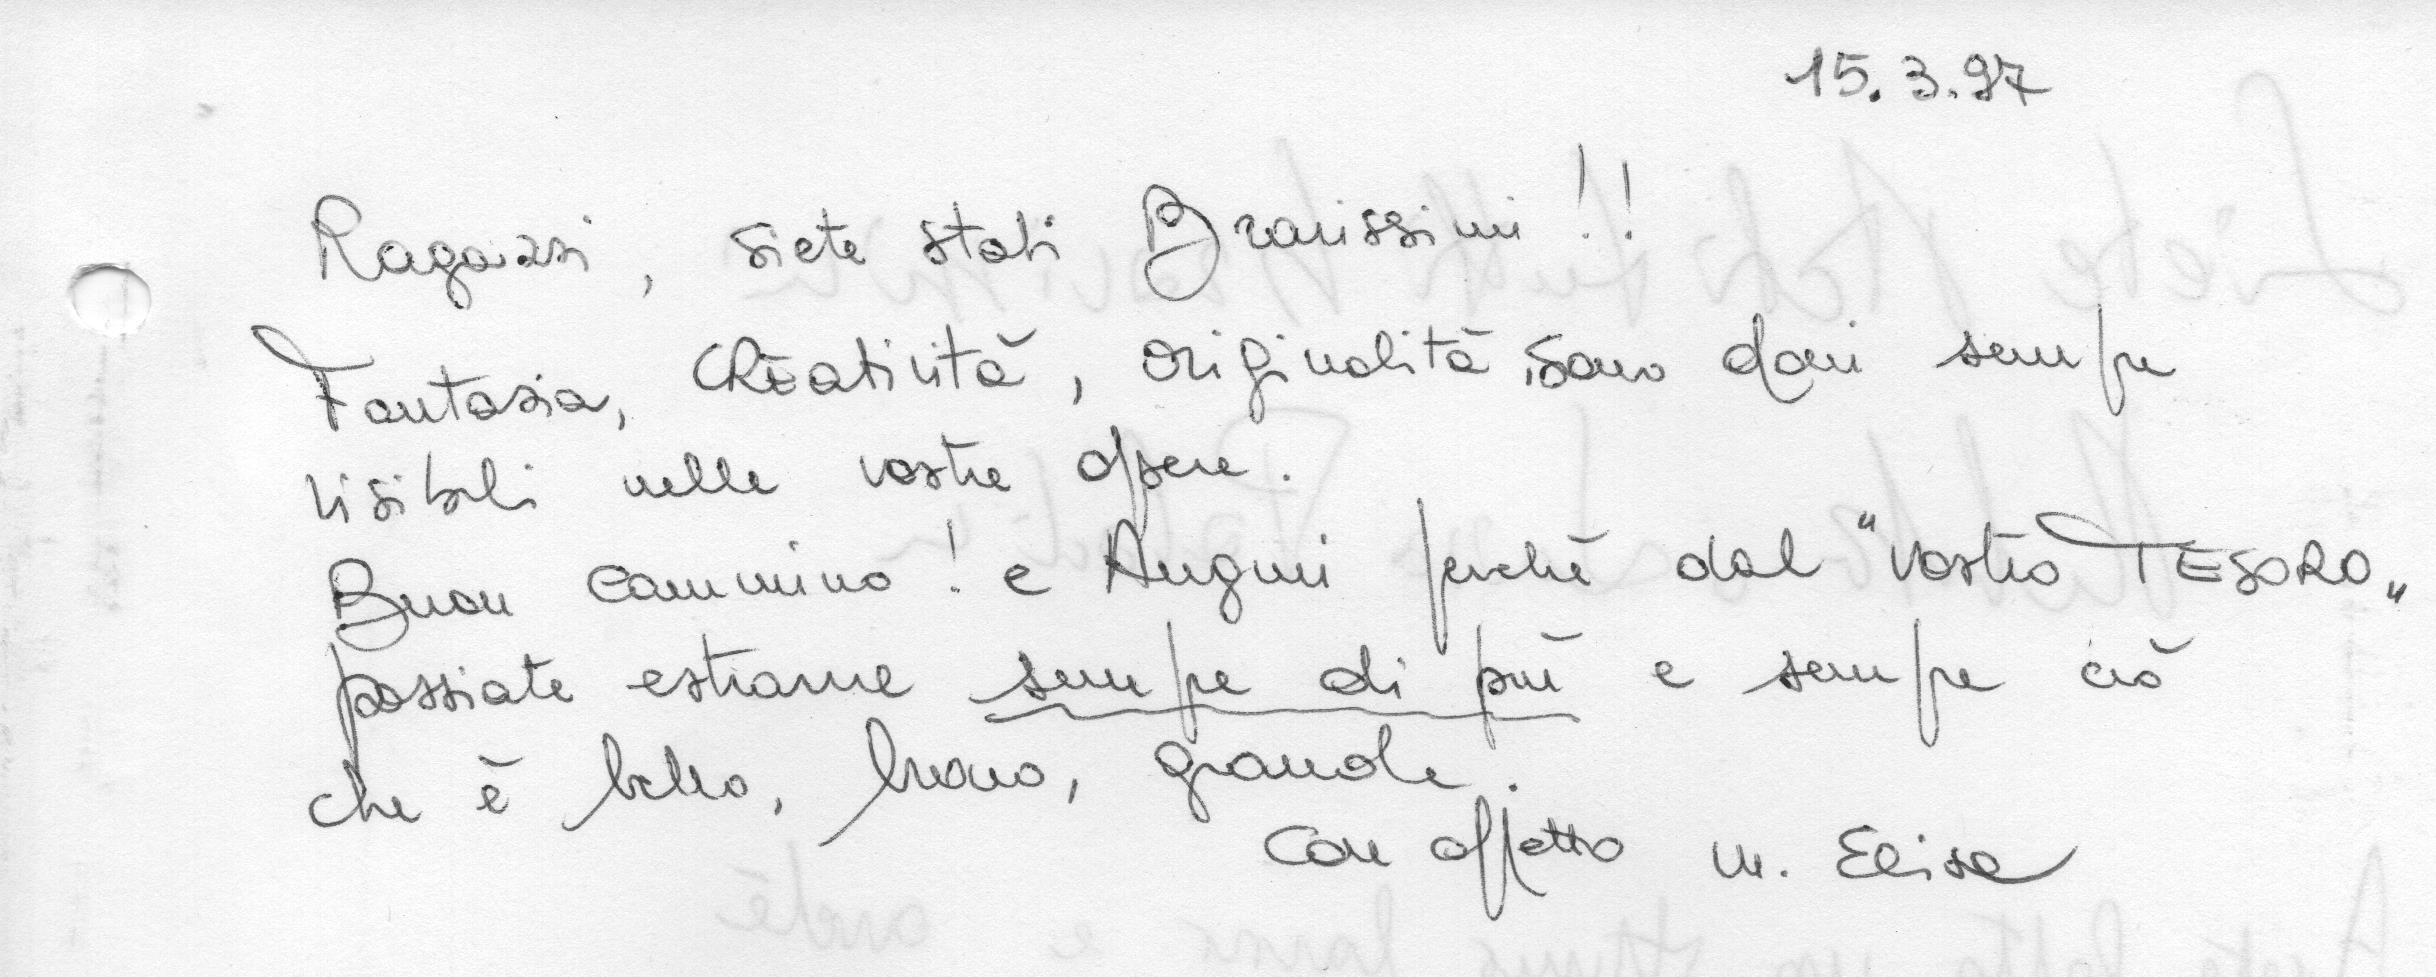 15.3.97
Ragazzi, siete stati Bravissimi!!
Fantasia, CREatività, originalità, sono doni sempre
visibili nelle vostre opere.
Buon cammino! e Auguri perchè dal "vostro TESORO"
possiate estrarre sempre di più e sempre ciò
che è bello, buono, grande.
Con affetto m. Elisa